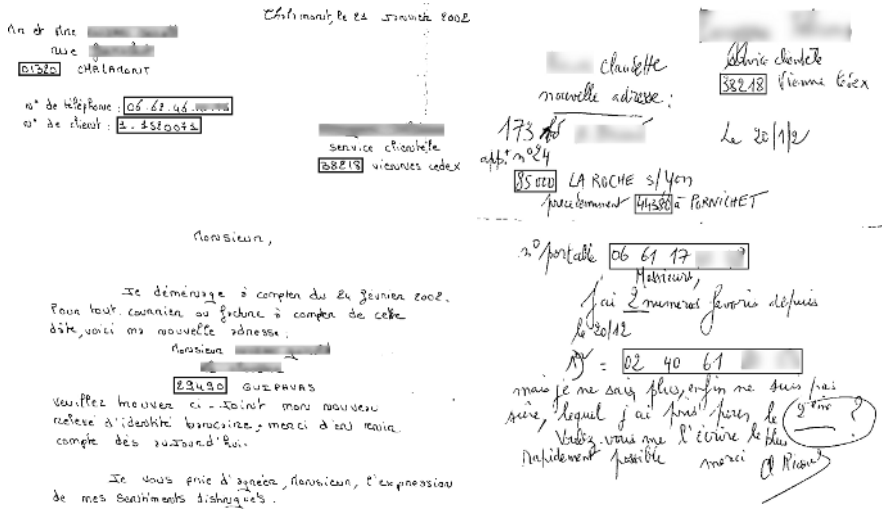 Chalamont, le 21 Janvier 2002
Mr et Mme
rue
01320 CHALAMONT
n° de téléphone : 06.62.46.
n° de client : 1.1520071
service clientèle
38218 viennes cedex
Monsieur,
Je déménage à compter du 24 février 2002.
Pour tout courrier ou facture à compter de cette
date, voici ma nouvelle adresse :
Monsieur
29490 GUIPAVAS
veuillez trouver ci-joint mon nouveau
relevé d'identité bancaire, merci d'en tenir
compte dès aujourd'hui.
Je vous prie d'agréer, Monsieur, l'expression
de mes sentiments distingués.
Claudette
Service clientèle
38218 Vienne Cédex
nouvelle adresse :
173
app.t n°24
Le 20/1/2
85000 LA ROCHE s/Yon
précédemment 44380 à PORNICHET
n° portable 06 61 17
Messieurs,
J'ai 2 numéros favoris depuis
le 20/12
= 02 40 61
mais je ne sais plus, enfin ne suis pas
sûre, lequel j'ai pris pour le 2ème ?
Voulez-vous me l'écrire le plus
rapidement possible merci